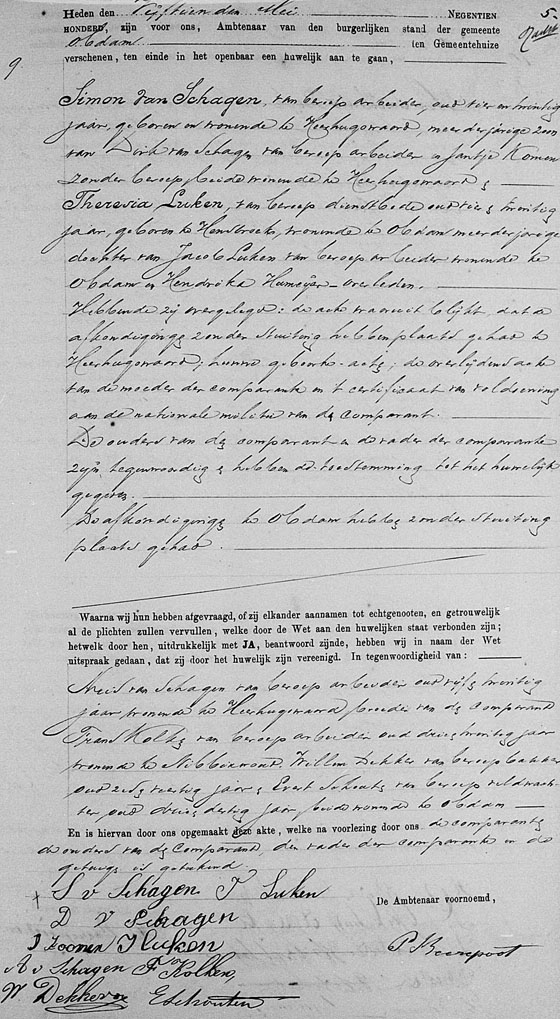 5
Heden den Vijftienden Mei NEGENTIEN
HONDERD, zijn voor ons, Ambtenaar van den burgerlijken stand der gemeente
Obdam ten Gemeentehuize
9 verschenen, ten einde in het openbaar een huwelijk aan te gaan,
Simon van Schagen, van beroep arbeider, oud vier en twintig
jaar, geboren en wonende te Heerhugowaard, meerderjarige zoon
van Dirk van Schagen van beroep arbeider en Jantje Komen
zonder beroep, beide wonende te Heerhugowaard &
Theresia Luken, van beroep dienstbode oud twintig
jaar, geboren te Hensbroek, wonende te Obdam meerderjarige
dochter van Jacob Luken van beroep arbeider wonende te
Obdam en Hendrika overleden.
Hebbende zij overgelegd: de acte waaruit blijkt, dat de
afkondiging zonder stuiting hebben plaats gehad te
Heerhugowaard; hunne geboorte-acten; de overlijdensacte
van de moeder der comparante en 't certificaat van voldoening
aan de nationale militie van den comparant.
De ouders van den comparant en de vader der comparante
zijn tegenwoordig & hebben de toestemming tot het huwelijk
gegeven.
De afkondiging te Obdam hebben zonder stuiting
plaats gehad.
Waarna wij hun hebben afgevraagd, of zij elkander aannamen tot echtgenooten, en getrouwelijk
al de plichten zullen vervullen, welke door de Wet aan den huwelijken staat verbonden zijn;
hetwelk door hen, uitdrukkelijk met JA, beantwoord zijnde, hebben wij in naam der Wet
uitspraak gedaan, dat zij door het huwelijk zijn vereenigd. In tegenwoordigheid van:
van Schagen van beroep arbeider oud vijf & twintig
jaar wonende te Heerhugowaard broeder van den comparant
Frans Kolk van beroep arbeider oud drie & twintig jaar
wonende te Nibbixwoud, Willem Dekker van beroep bakker
oud zes & veertig jaar & Evert Schouten van beroep veldwach-
ter oud drie & dertig jaar beide wonende te Obdam
En is hiervan door ons opgemaakt deze akte, welke na voorlezing door ons de comparanten
de ouders van den comparant, den vader der comparante en de
getuigen is geteekend
S v Schagen T Luken
D v Schagen De Ambtenaar voornoemd,
J Komen J Luken
A v Schagen F Kolken,
W Dekker E Schouten